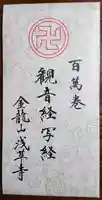 百萬巻
觀音経写経
金龍山浅草寺